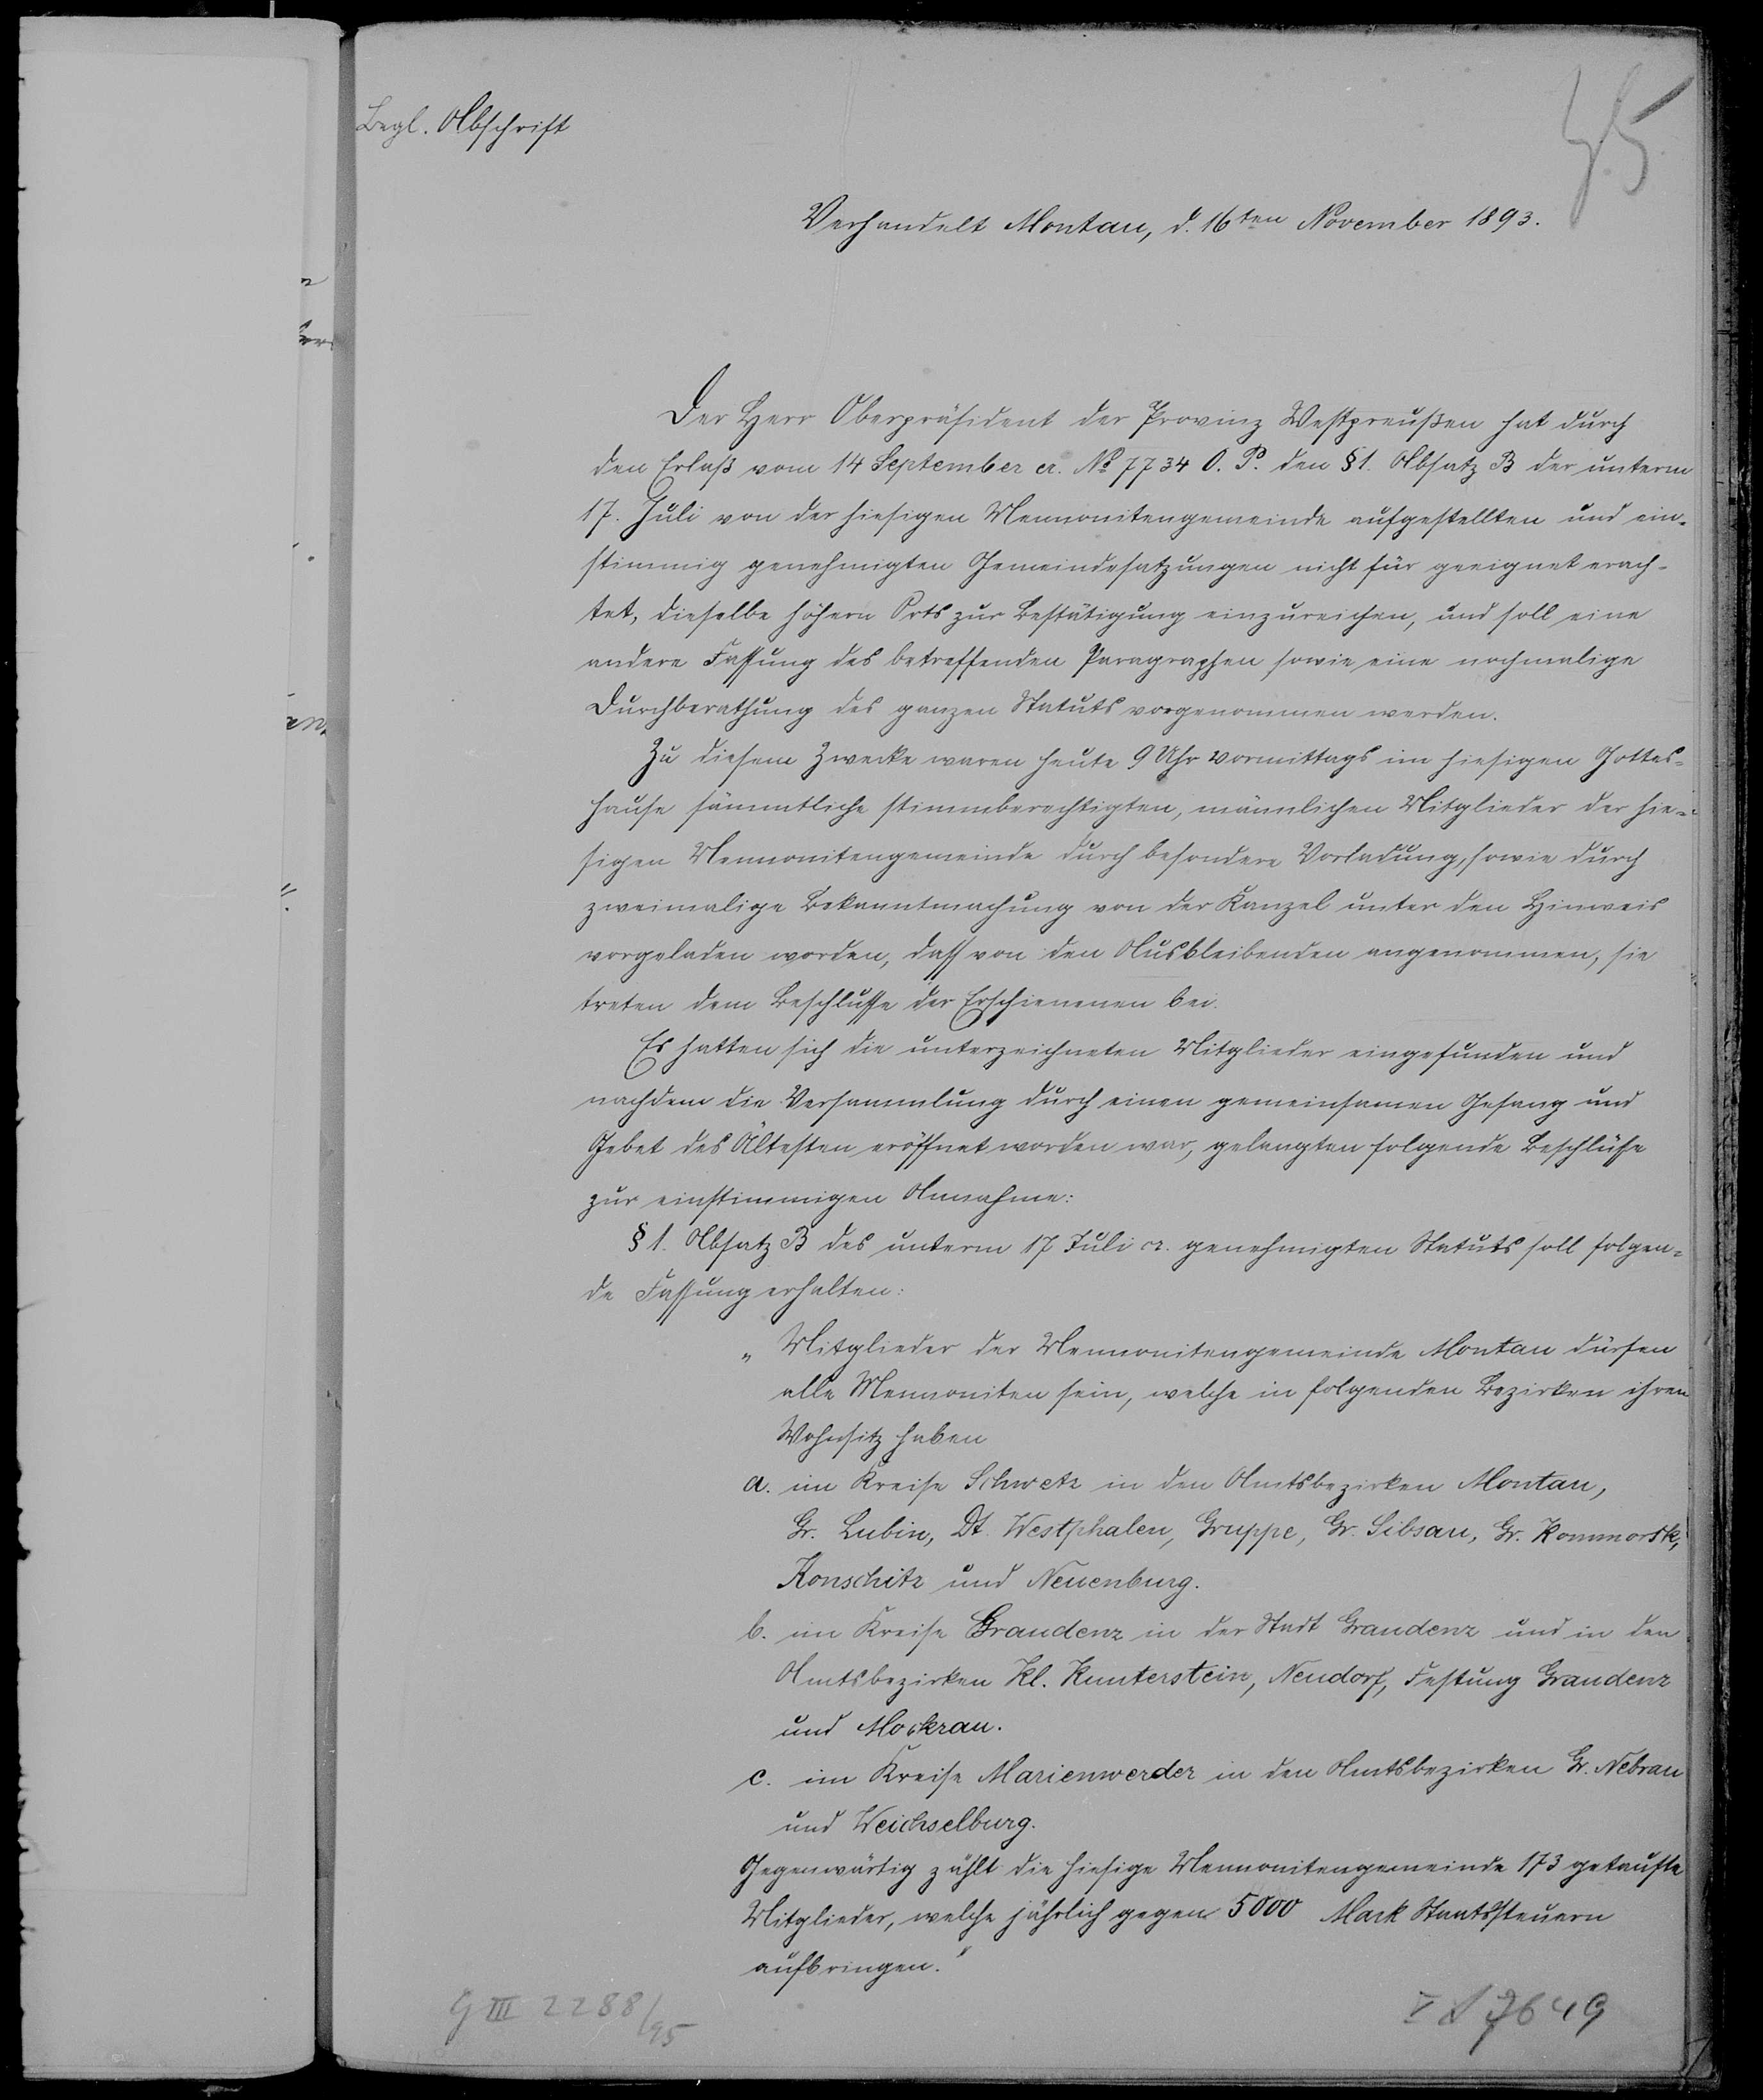 Begl. Abschrift
Verhandelt Montau, d. 16ten November 1893.
Der Herr Oberpräsident der Provinz Westpreußen hat durch
den Erlaß vom 14 September cr. No 7734 O. P. den §1. Absatz B der unterm
17. Juli von der hiesigen Mennonitengemeinde aufgestellten und ein-
stimmig genehmigten Gemeindesatzungen nicht für geeignet erach-
tet, dieselbe höhern Orts zur Bestätigung einzureichen, und soll eine
andere Fassung des betreffenden Paragraphen sowie eine nochmalige
Durchberathung des ganzen Statuts vorgenommen werden.
Zu diesem Zwecke waren heute 9 Uhr vormittags im hiesigen Gottes-
hause sämmtliche stimmberechtigten, männlichen Mitglieder der hie-
sigen Mennonitengemeinde durch besondere Vorladung, sowie durch
zweimalige Bekanntmachung von der Kanzel unter den Hinweis
vorgeladen worden, dass von den Ausbleibenden angenommen, sie
treten dem Beschlusse der Erschienenen bei.
Es hatten sich die unterzeichneten Mitglieder eingefunden und
nachdem die Versammlung durch einen gemeinsamen Gesang und
Gebet des Ältesten eröffnet worden war, gelangten folgende Beschlüsse
zur einstimmigen Annahme:
§ 1. Absatz B des unterm 17 Juli cr. genehmigten Statuts soll folgen-
de Fassung erhalten:
„ Mitglieder der Mennonitengemeinde Montau dürfen
alle Mennoniten sein, welche in folgenden Bezirken ihren
Wohnsitz haben
a. im Kreise Schwetz in den Amtsbezirken Montau,
Gr. Lubin, Dt. Westphalen, Gruppe, Gr. Sibsau, Gr. Kommorsk,
Konschitz und Neuenburg.
b. im Kreise Graudenz in der Stadt Graudenz und in den
Amtsbezirken Kl. Kunterstein, Neudorf, Festung Graudenz
und Mockrau.
c. im Kreise Marienwerder in den Amtsbezirken Gr. Nebrau
und Weichselburg.
Gegenwärtig zählt die hiesige Mennonitengemeinde 173 getaufte
Mitglieder, welche jährlich gegen 5000 Mark Staatssteuern
aufbringen."
G III 2288/95
7649